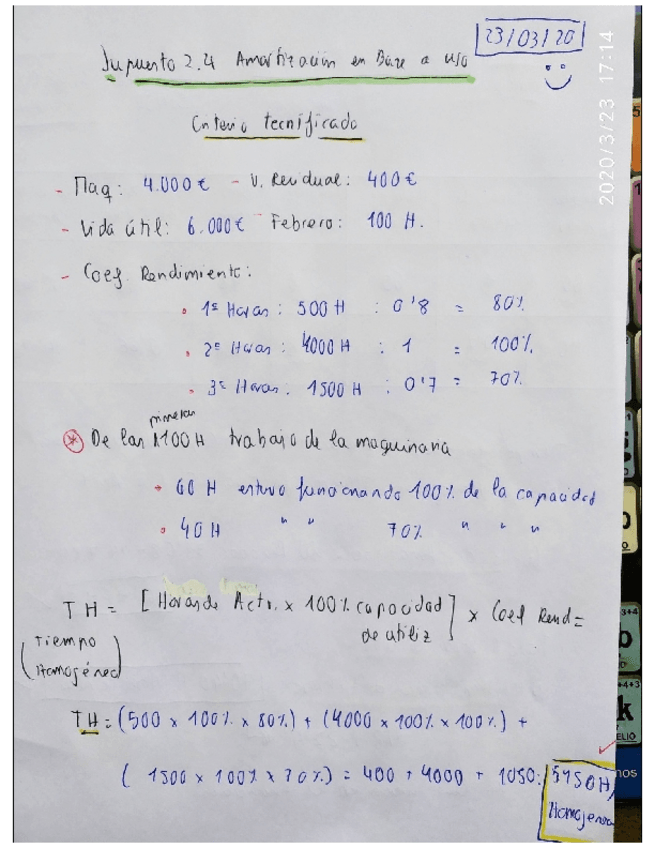 23/03/20
Supuesto 2.4 Amortización en Base a uso
Criterio tecnificado
2020/3/23 17:14
- Maq: 4.000€ - V. Residual: 400€
- Vida útil: 6.000€ - Febrero: 100 H.
- Coef Rendimiento:
• 1ª Horas: 500 H : 0'8 = 80%
• 2ª Horas: 4000 H : 1 = 100%
• 3ª Horas: 1500 H : 0'7 = 70%
primeras
* De las 100 H trabajo de la maquinaria
• 60 H estuvo funcionando 100% de la capacidad
• 40 H " " 70% " " "
TH = [Horas de Activ. x 100% capacidad de utiliz] x Coef Rend =
(Tiempo
Homogéneo)
TH = (500 x 100% x 80%) + (4000 x 100% x 100%) +
(1500 x 100% x 70%) = 400 + 4000 + 1050 = 5450H
Homogenea